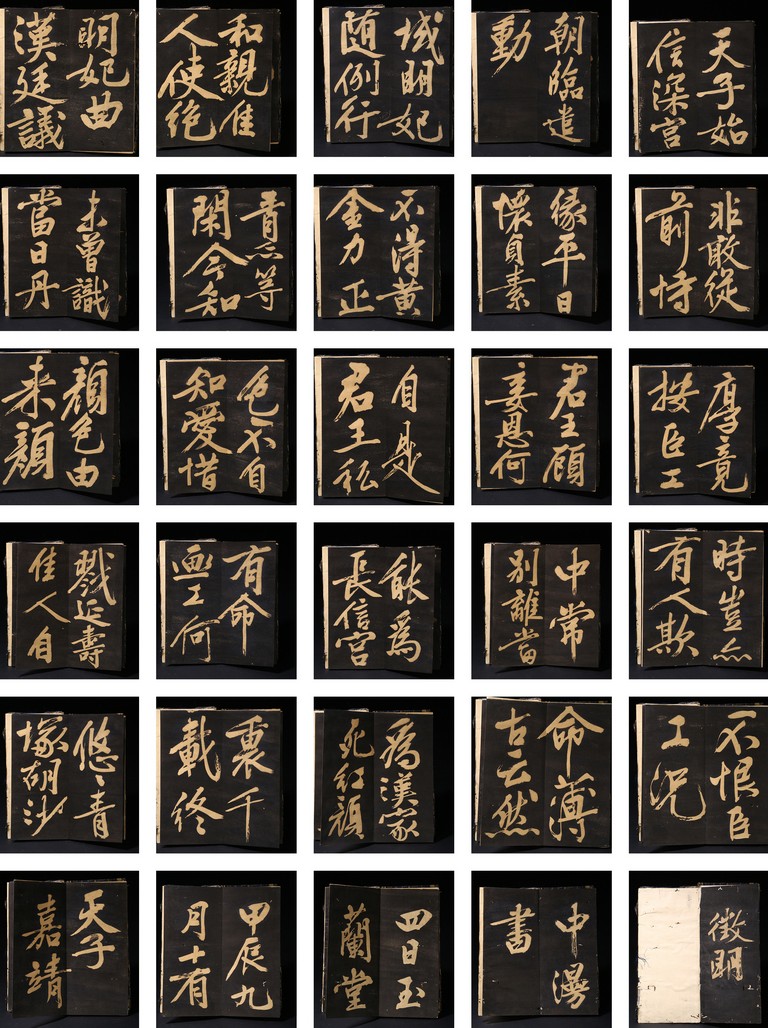 明妃曲
漢廷議
和親佳
人使絶
域明妃
随例行
朝臨遣
動
天子始
信深宫
未曾識
當日丹
青亦等
閑今知
不得黄
金力正
缘平日
懷貞素
非敢從
前恃
顔色由
来顔
色不自
知愛惜
自是
君王私
君王顧
妾恩何
厚竟
按臣工
戮延壽
佳人自
有命
画工何
能爲
長信宫
中常
别離當
時豈亦
有人欺
悠々青
塚胡沙
裏千
載終
爲漢家
死紅顔
命薄
古云然
不恨臣
工况
天子
嘉靖
甲辰九
月十有
四日玉
蘭堂
中漫
書
徵明